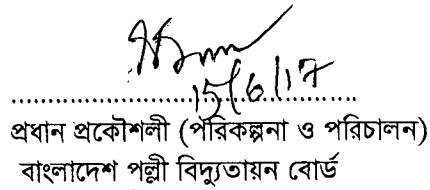 15/6/17
প্রধান প্রকৌশলী (পরিকল্পনা ও পরিচালন)
বাংলাদেশ পল্লী বিদ্যুতায়ন বোর্ড